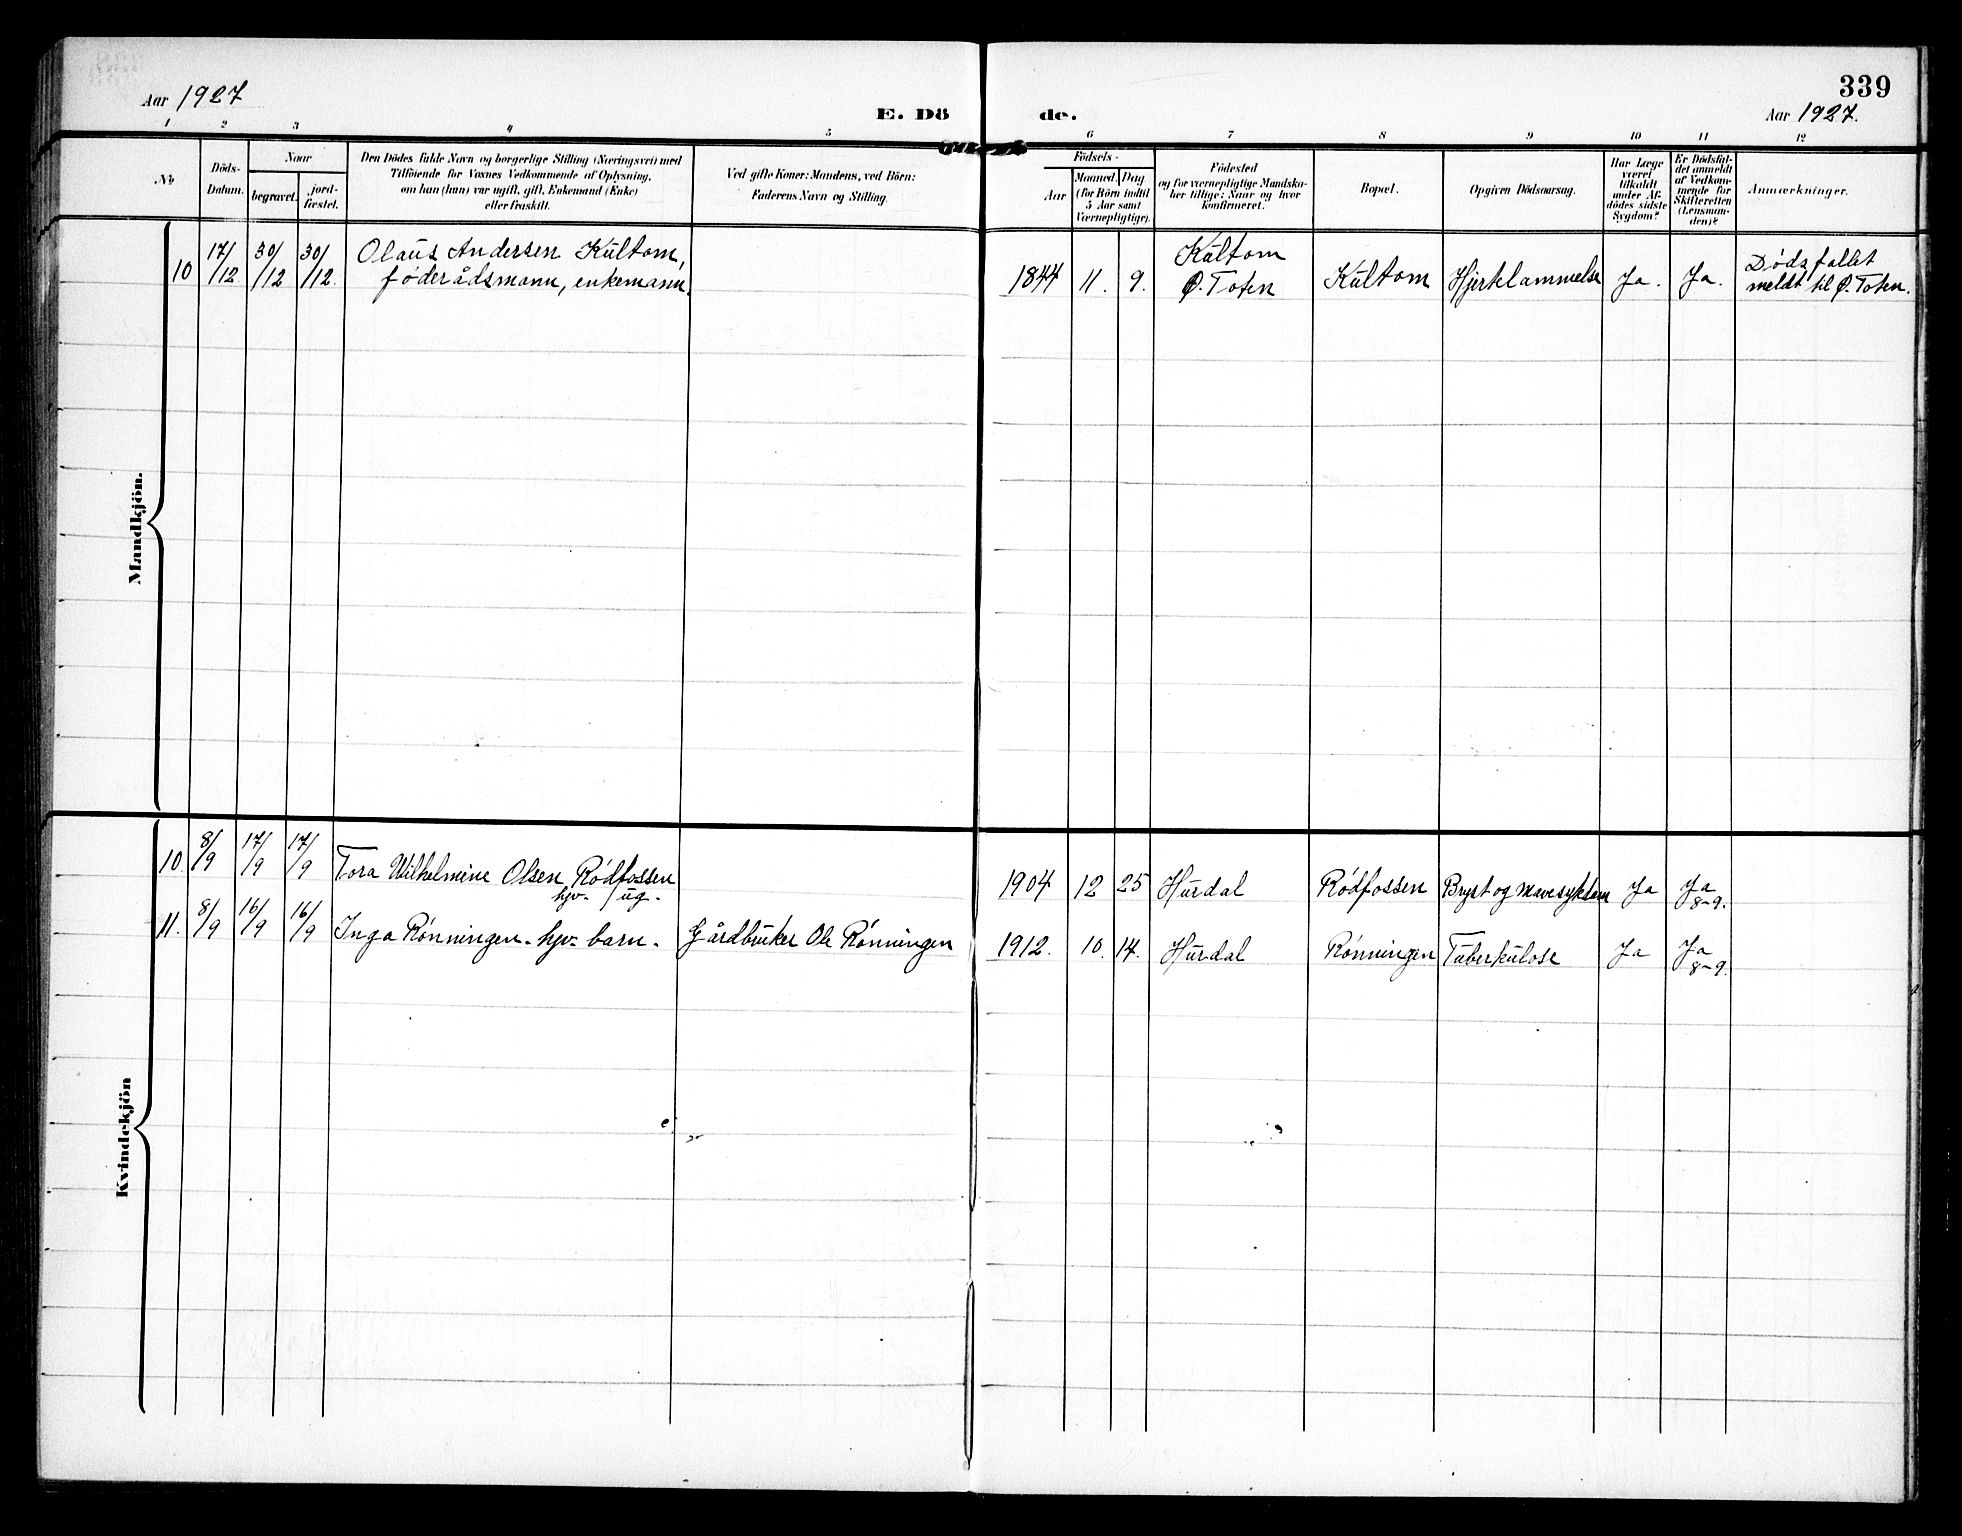 339
Aar 1927
E. Döde.
Aar 1927.
1 2 3 4 5 6 7 8 9 10 11 12
No
Döds-
Datum.
Naar
begravet.
jord-
fæstet.
Den Dödes fulde Navn og borgerlige Stilling (Næringsvei) med
Tilföiende for Voxnes Vedkommende af Oplysning,
om han (hun) var ugift, gift, Enkemand (Enke)
eller fraskilt.
Ved gifte Koner: Mandens, ved Börn:
Faderens Navn og Stilling.
Födsels-
Aar
Maaned. Dag
(for Börn indtil
5 Aar samt
Værnepligtige).
Födested
og for værnepligtige Mandska-
ber tillige: Naar og hvor
konfirmeret.
Bopæl.
Opgiven Dödsaarsag.
Har Læge
været
tilkaldt
under Af-
dödes sidste
Sygdom?
Er Dödsfal-
det anmeldt
af Vedkom-
mende for
Skifteretten
(Lensman-
den)?
Anmærkninger.
Mandkjön.
10 17/12 30/12 30/12. Olaus Andersen Kultom,
föderådsmann, enkemann.
1844 11. 9. Kultom
Ø. Toten
Kultom Hjertelammelse Ja. Ja. Dødsfallet
meldt til Ø. Toten.
Kvindekjön
10. 8/9 17/9 17/9 Tora Wilhelmine Olsen Rødfossen
hjv. ug.
1904 12 25 Hurdal Rødfossen Bryst og mavesykdom Ja Ja
8-9.
11. 8/9 16/9 16/9 Inga Rønningen - hjv. barn. Gårdbruker Ole Rønningen
1912. 10. 14. Hurdal Rønningen Tuberkulose Ja Ja
8-9.